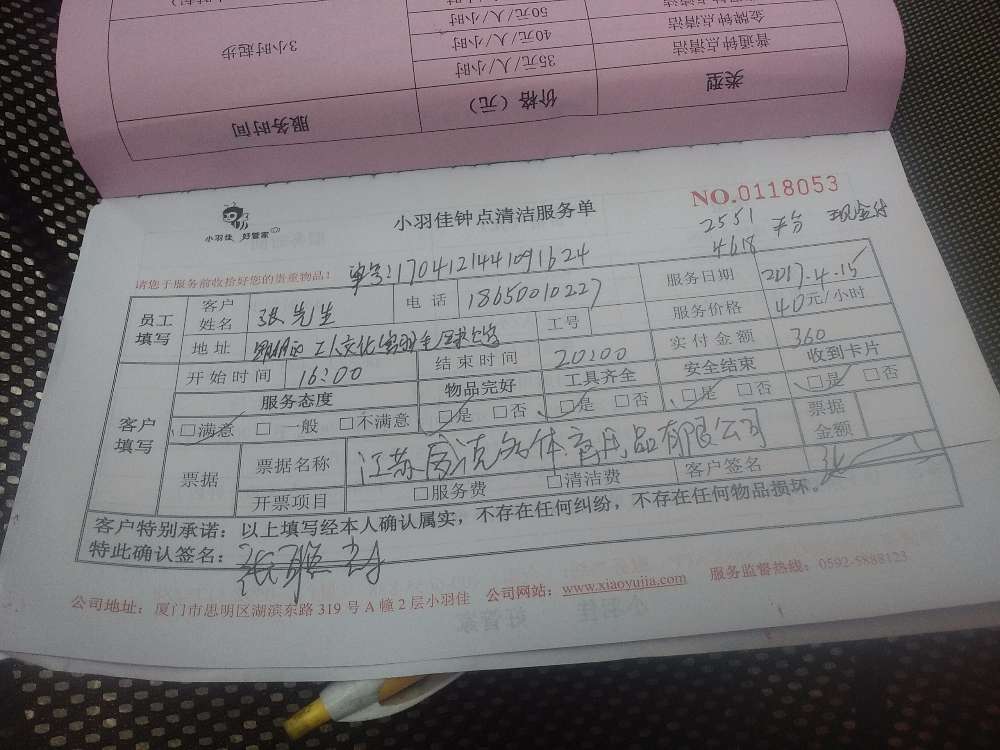 服务时间 价格（元） 类型
3小时起步 35元/人/小时 普通钟点清洁
40元/人/小时 金牌钟点清洁
50元/人/小时
小羽佳 好管家
小羽佳钟点清洁服务单
NO.0118053
2551 平台 现金付
4618
请您于服务前收拾好您的贵重物品！
单号:1704121441091624
员工填写 客户姓名 张先生 电话 18650010227 服务日期 2017.4.15
地址 工人文化宫 工号 服务价格 40元/小时
客户填写 开始时间 16:00 结束时间 20:00 实付金额 360
服务态度 物品完好 工具齐全 安全结束 收到卡片
□满意 □一般 □不满意 □是 □否 □是 □否 □是 □否 □是 □否
票据 票据名称 江苏 体育用品有限公司 票据金额
开票项目 □服务费 □清洁费 客户签名 张
客户特别承诺：以上填写经本人确认属实，不存在任何纠纷，不存在任何物品损坏。
特此确认签名：
公司地址：厦门市思明区湖滨东路319号A幢2层小羽佳 公司网站：www.xiaoyujia.com 服务监督热线：0592-5888123